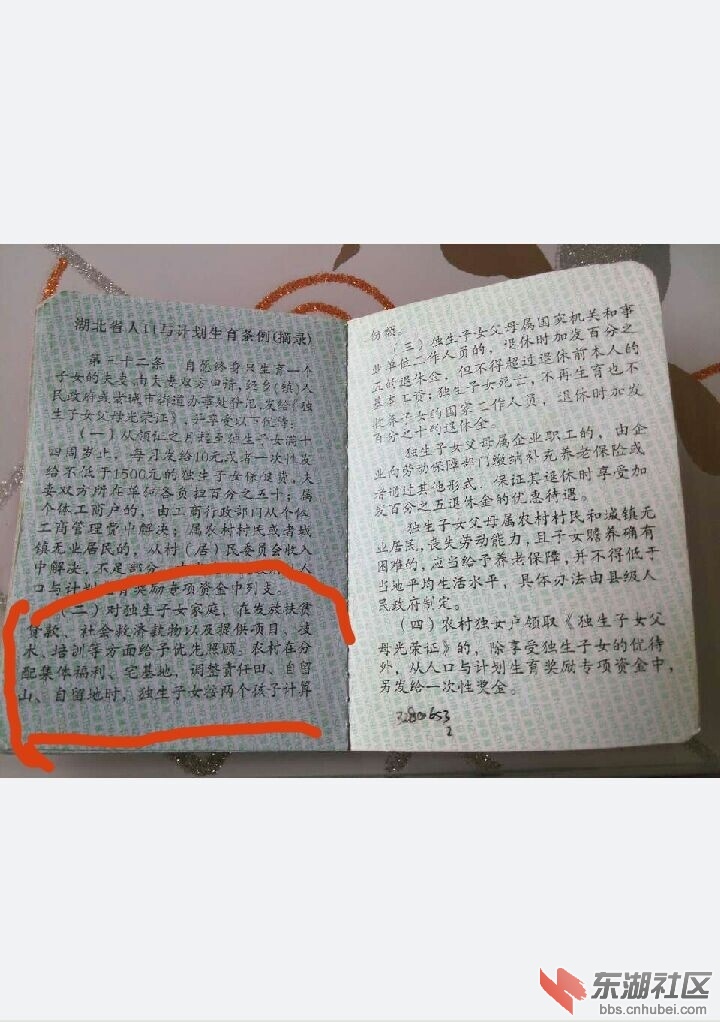 湖北省人口与计划生育条例(摘录)
第三十二条 自愿终身只生育一个
子女的夫妻,由夫妻双方申请,经乡(镇)人
民政府或者城市街道办事处登记,发给《独
生子女父母光荣证》,并享受以下优待:
(一)从领证之月起至独生子女满十
四周岁止,每月发给10元或者一次性发
给不低于1500元的独生子女保健费,夫
妻双方所在单位各负担百分之五十;属
个体工商户的,由工商行政部门从个体
工商管理费中解决;属农村村民或者城
镇无业居民的,从村(居)民委员会收入
中解决,不足部分
口与计划生育奖励专项资金中列支.
(二)对独生子女家庭,在发放扶贫
贷款、社会救济款物以及提供项目、技
术、培训等方面给予优先照顾。农村在分
配集体福利、宅基地,调整责任田、自留
山、自留地时,独生子女按两个孩子计算
份额。
(三)独生子女父母属国家机关和事
业单位工作人员的,退休时加发百分之
五的退休金,但不得超过退休前本人的
基本工资;独生子女死亡,不再生育也不
收养子女的国家工作人员,退休时加发
百分之十的退休金。
独生子女父母属企业职工的,由企
业向劳动保障部门缴纳补充养老保险或
者通过其他形式,保证其退休时享受加
发百分之五退休金的优惠待遇。
独生子女父母属农村村民和城镇无
业居民,丧失劳动能力,且子女赡养确有
困难的,应当给予养老保障,并不得低于
当地平均生活水平,具体办法由县级人
民政府制定。
(四)农村独女户领取《独生子女父
母光荣证》的,除享受独生子女的优待
外,从人口与计划生育奖励专项资金中,
另发给一次性奖金。
2
东湖社区
bbs.cnhubei.com